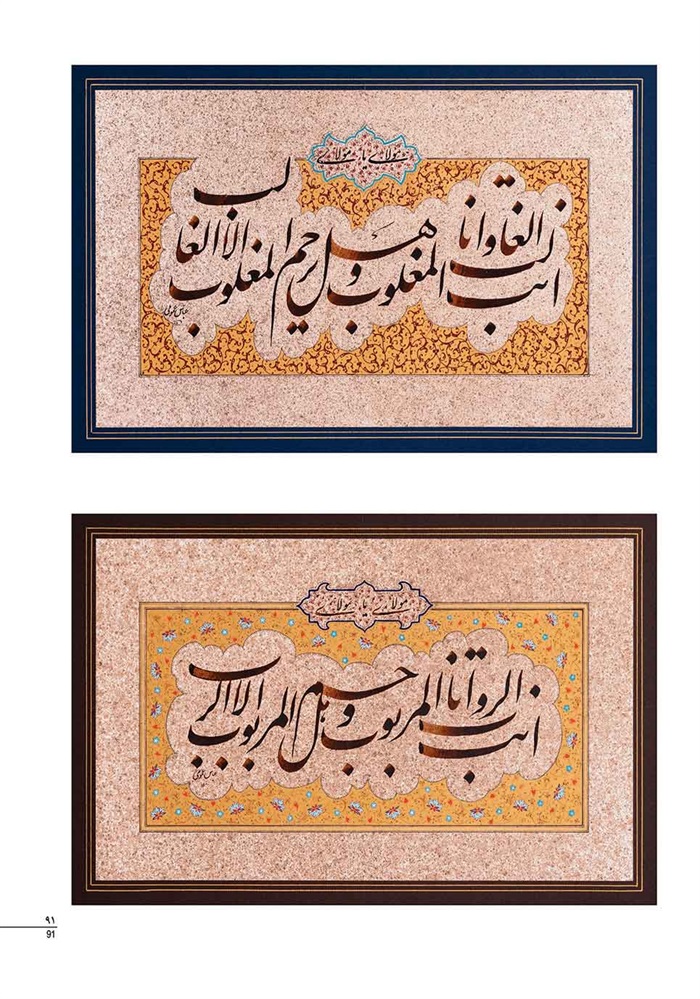 مولای یا مولای
انت الغالب وانا المغلوب وهل یرحم المغلوب الا الغالب
مولای یا مولای
انت الرب وانا المربوب وهل یرحم المربوب الا الرب
۹۱
91